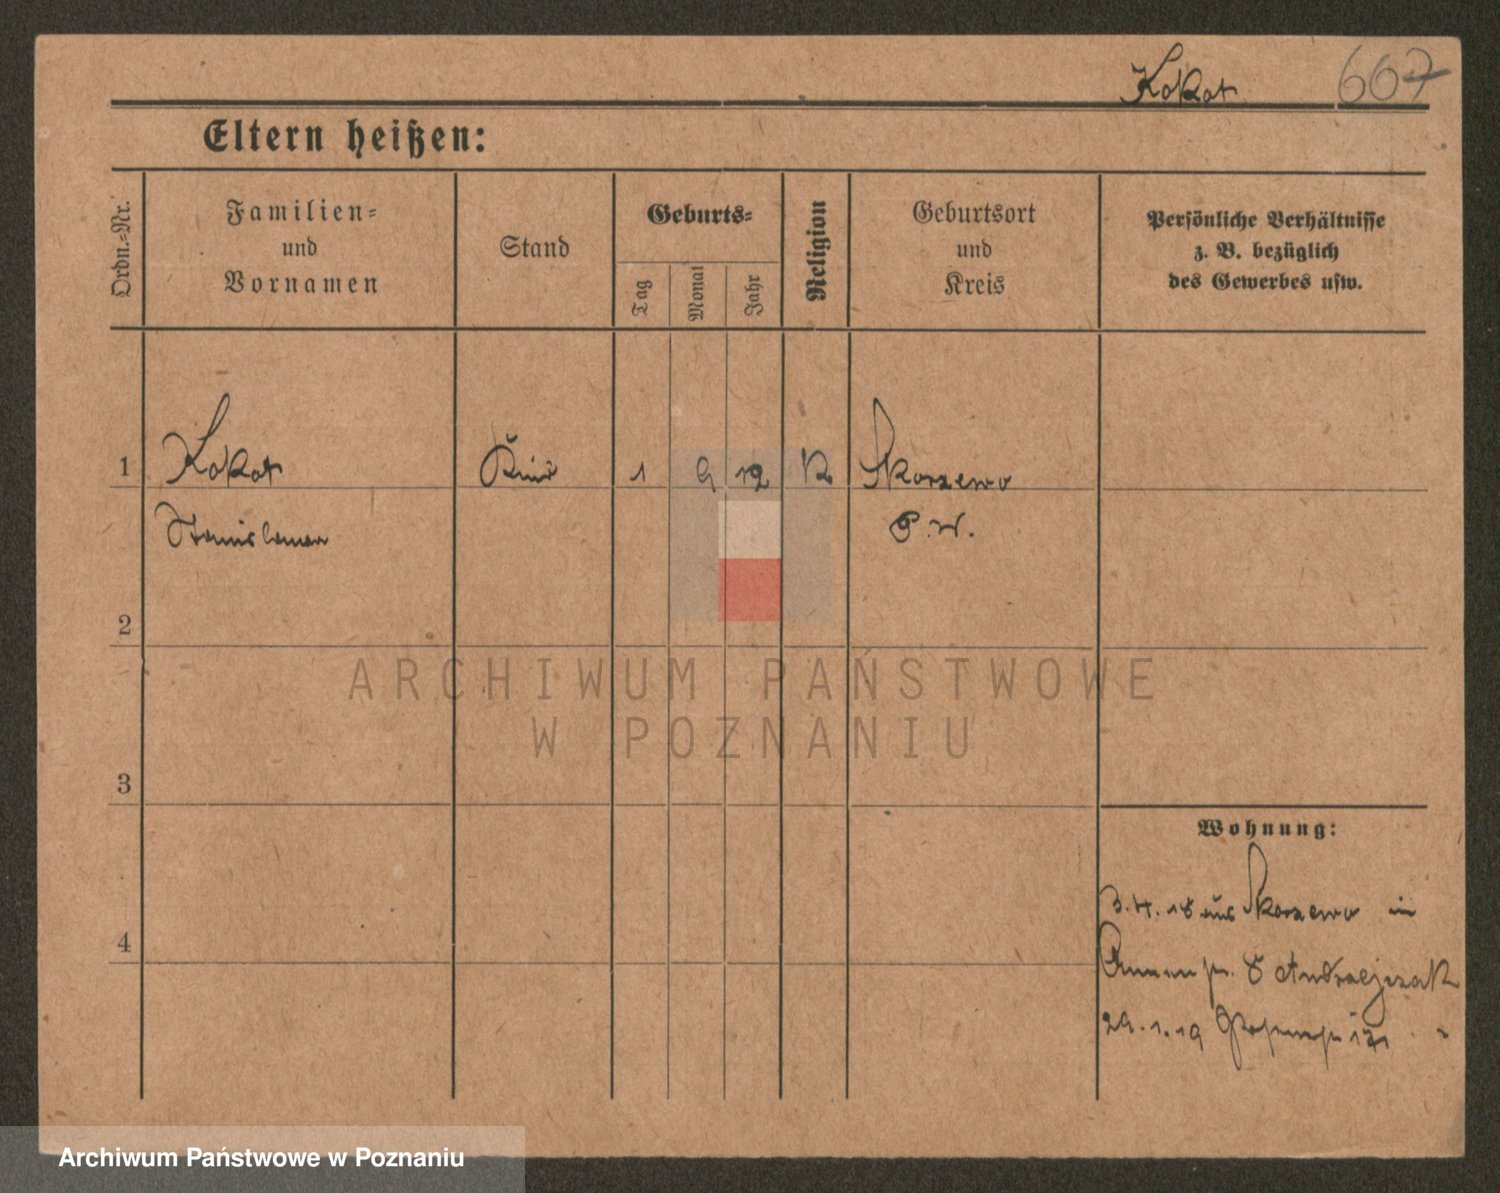 Kokot 607
Eltern heißen:
Ordn.-Nr.
Familien-
und
Vornamen
Stand
Geburts-
Tag
Monat
Jahr
Religion
Geburtsort
und
Kreis
Persönliche Verhältnisse
z. B. bezüglich
des Gewerbes usw.
1 Kokot 1 9 12 K Skorzewo
Stanislaus P. W.
2
ARCHIWUM PAŃSTWOWE
W POZNANIU
3
Wohnung:
3.4.18 aus Skorzewo in
4
8 Andrzejczak
29.1.19 171 "
Archiwum Państwowe w Poznaniu